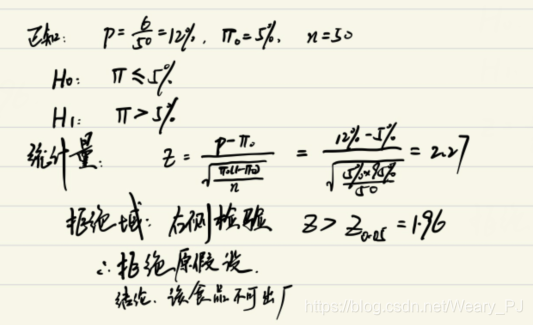 已知: P=6/50=12%, π₀=5%, n=50
H₀: π≤5%
H₁: π>5%
统计量: Z = (p-π₀)/√(π₀(1-π₀)/n) = (12%-5%)/√(5%×95%/50) = 2.27
拒绝域: 右侧检验 Z>Z₀.₀₅=1.96
∴拒绝原假设.
结论. 该食品不可出厂
https://blog.csdn.net/Weary_PJ